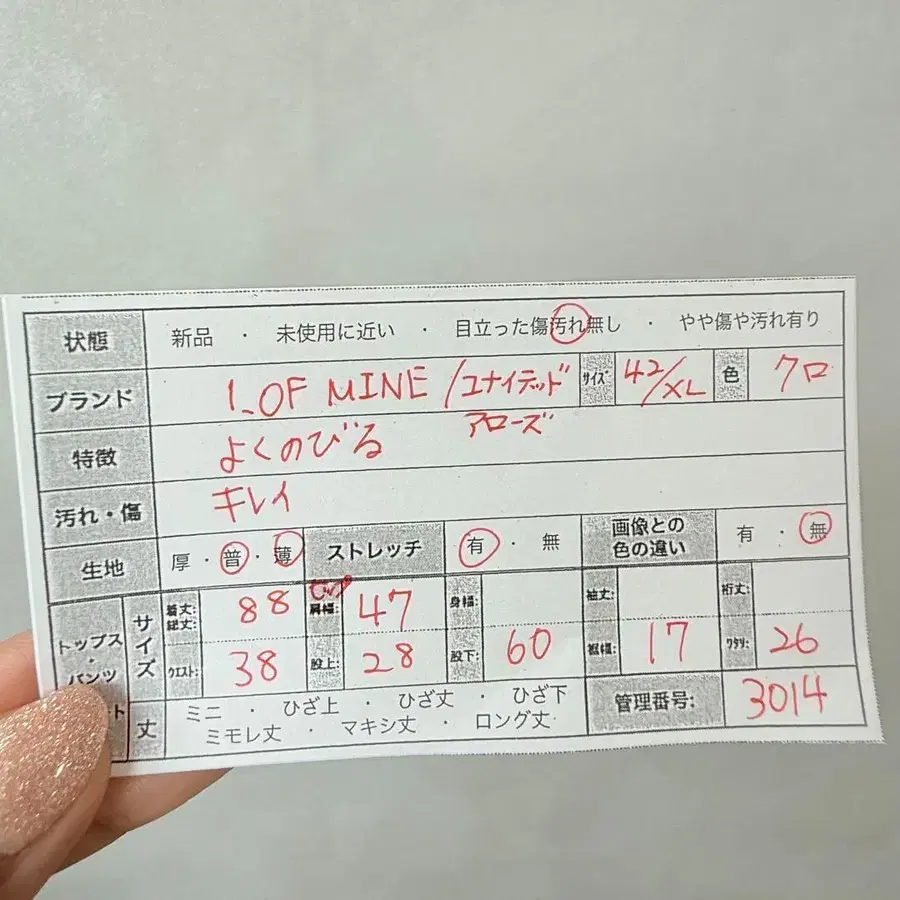 状態 新品 ・ 未使用に近い ・ 目立った傷汚れ無し ・ やや傷や汚れ有り
ブランド 1.OF MINE /ユナイテッド アローズ サイズ 42/XL 色 クロ
特徴 よくのびる
汚れ・傷 キレイ
生地 厚・普・薄 ストレッチ 有・無 画像との色の違い 有・無
トップス・パンツ サイズ 着丈:総丈: 88 ヒップ 肩幅: 47 身幅: 袖丈: 裄丈:
ウエスト: 38 股上: 28 股下: 60 裾幅: 17 ワタリ: 26
ト 丈 ミニ ・ ひざ上 ・ ひざ丈 ・ ひざ下 管理番号: 3014
ミモレ丈 ・ マキシ丈 ・ ロング丈